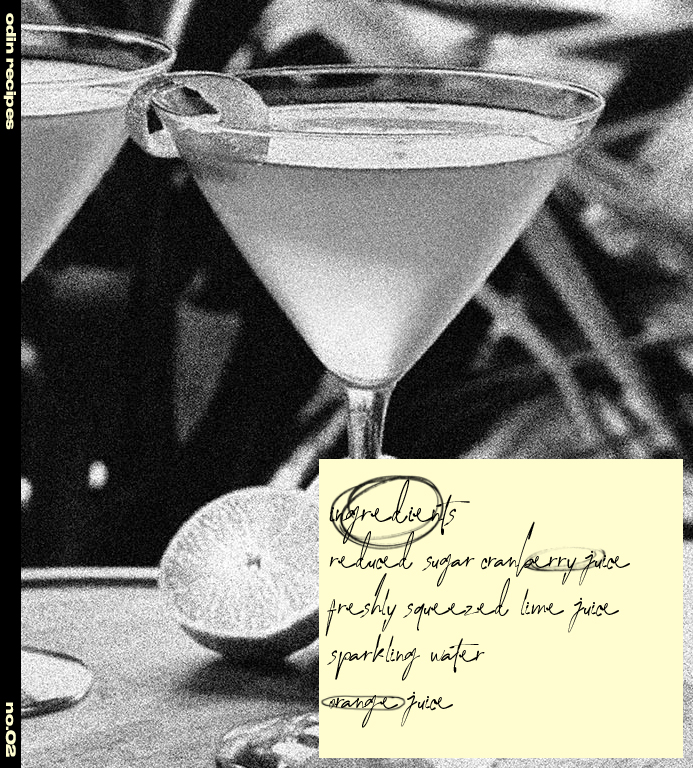 odin recipes
ingredients
reduced sugar cranberry juice
freshly squeezed lime juice
sparkling water
orange juice
no.02